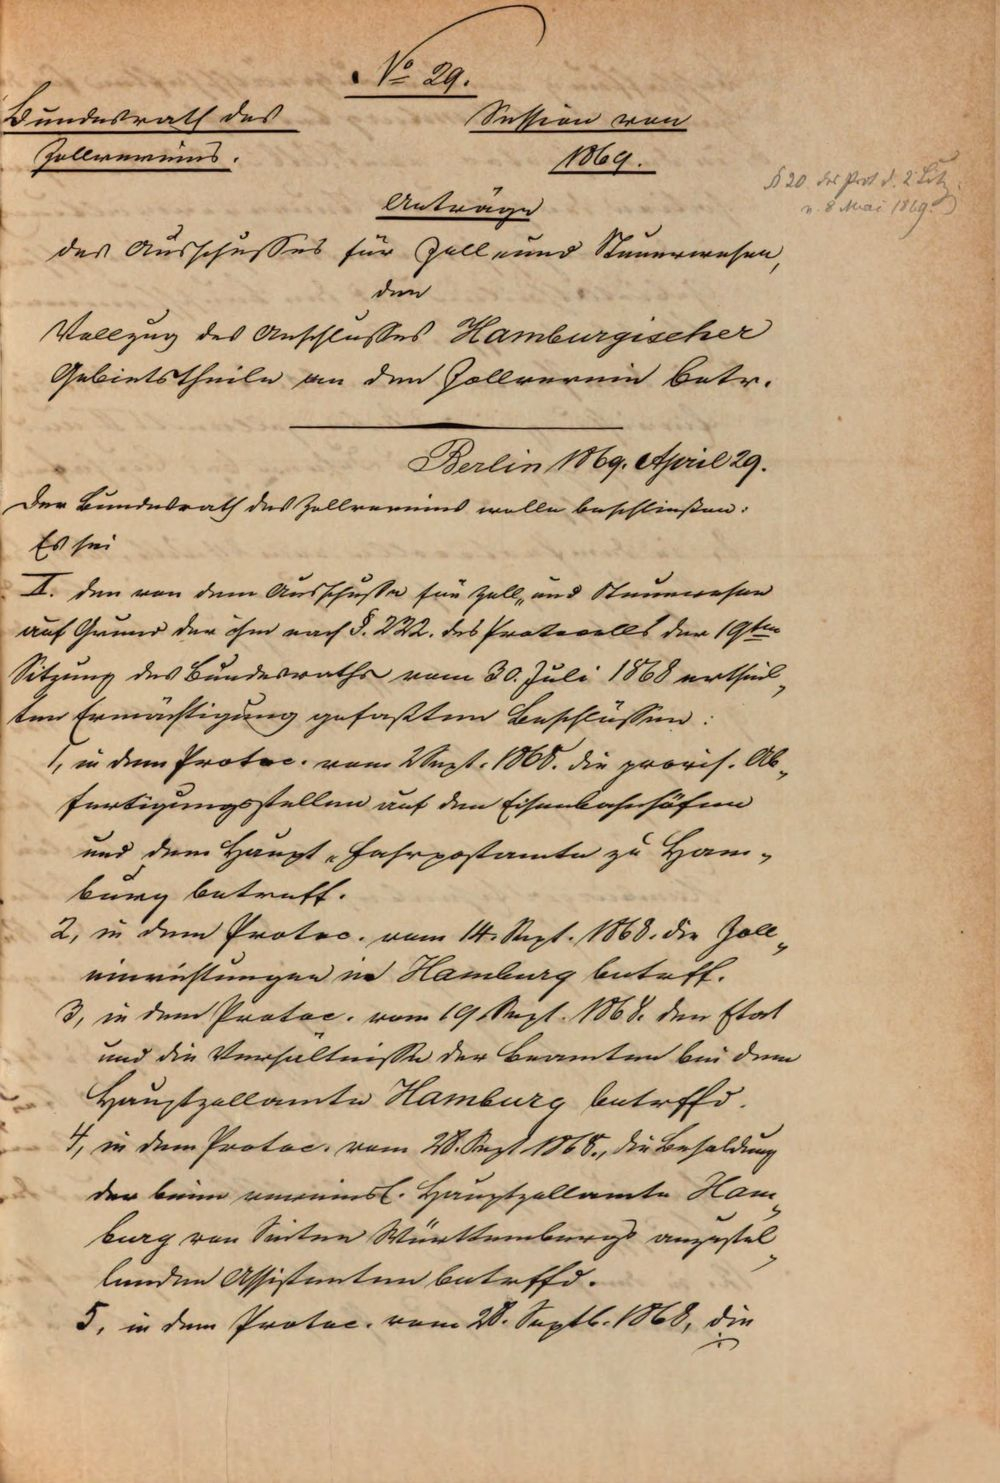 No 29.
Bundesrath des Session von
Zollvereins. 1869.
§ 20 des Prot d. 2 Sitz.
v. 8 Mai 1869.
Anträge
des Ausschusses für Zoll- und Steuerwesen,
den
Vollzug des Anschlusses Hamburgischer
Gebietstheile an den Zollverein betr.
Berlin 1869. April 29.
Der Bundesrath des Zollvereins wolle beschließen:
Es sei
I. den von dem Ausschusse für Zoll- und Steuerwesen
auf Grund der ihm nach §. 222. des Protocolls der 19ten
Sitzung des Bundesraths vom 30. Juli 1868 ertheil-
ten Ermächtigung gefaßten Beschlüssen:
1, in dem Protoc. vom 2 Sept. 1868. die provis. Ab-
fertigungsstellen auf den Eisenbahnhöfen
und dem Haupt-Fahrpostamte zu Ham-
burg betreff.
2, in dem Protoc. vom 14. Sept. 1868. die Zoll-
einrichtungen in Hamburg betreff.
3, in dem Protoc. vom 19. Sept. 1868. den Etat
und die Verhältnisse der Beamten bei dem
Hauptzollamte Hamburg betreffd.
4, in dem Protoc. vom 28. Sept 1868., die Besoldung
der beim vereinsl. Hauptzollamte Ham-
burg von Seiten Württembergs anzustel-
lenden Assistenten betreffd.
5, in dem Protoc. vom 28. Septb. 1868, die